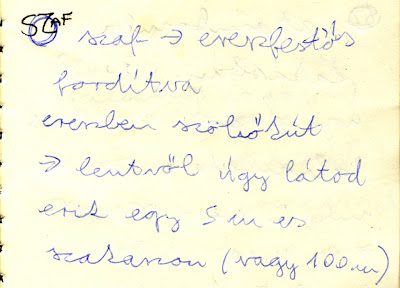 SZAF
szaf → ereszfestős
fordítva
ereszben szőlsőkút
→ lentről úgy látod
erik egy 5 m es
szakaszon (vagy 100.m)